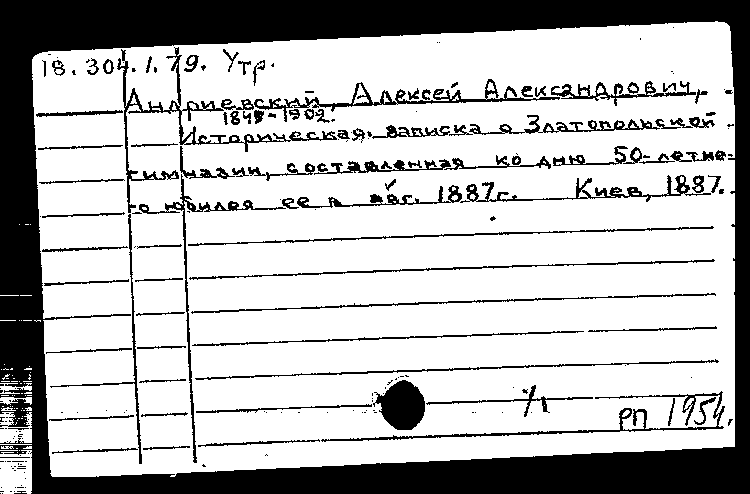 18.304.1.79. Утр.
Андриевский, Алексей Александрович,
1845-1902.
Историческая записка о Златопольской
гимназии, составленная ко дню 50-летне-
го юбилея ее в авг. 1887г. Киев, 1887.
1/1
РП 1954.